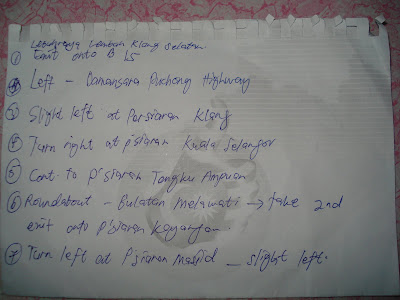 Lebuhraya Lembah Klang Selatan.
① Exit onto B15
② Left - Damansara Puchong Highway
③ Slight left at Persiaran Klang
④ Turn right at p'siaran Kuala Selangor
⑤ Cont. to P'siaran Tengku Ampuan
⑥ Roundabout - Bulatan Melawati → take 2nd
exit onto P'siaran Kayangan.
⑦ Turn left at P'siaran Masjid _ slight left.